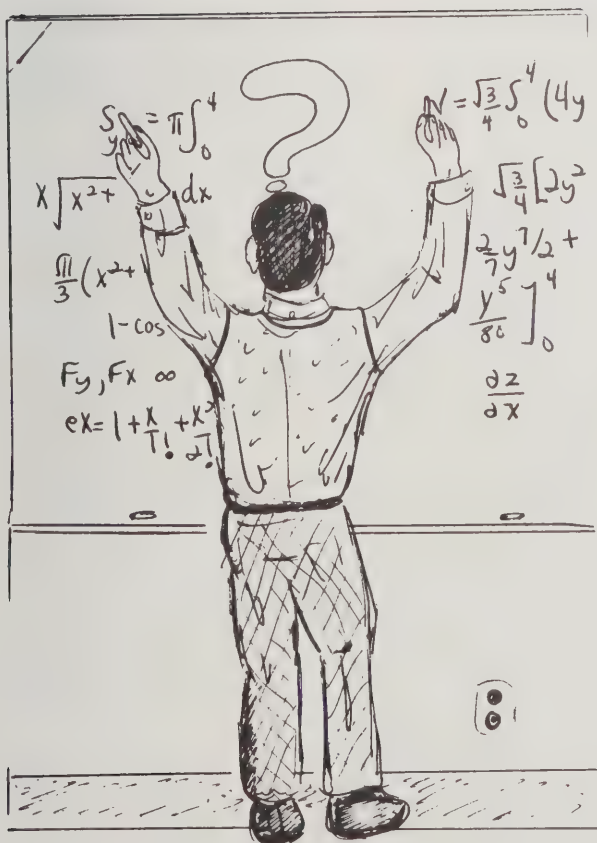 Sy = π∫₀⁴
x√x²⁺ dx
π/3 (x²⁺
1-cos
Fy, Fx ∞
ex= 1 + x/1! + x²/2!
V = √3/4 ∫₀⁴ (4y
√3/4 [2y²
2/7 y⁷/² +
y⁵/80 ]₀⁴
∂z/∂x